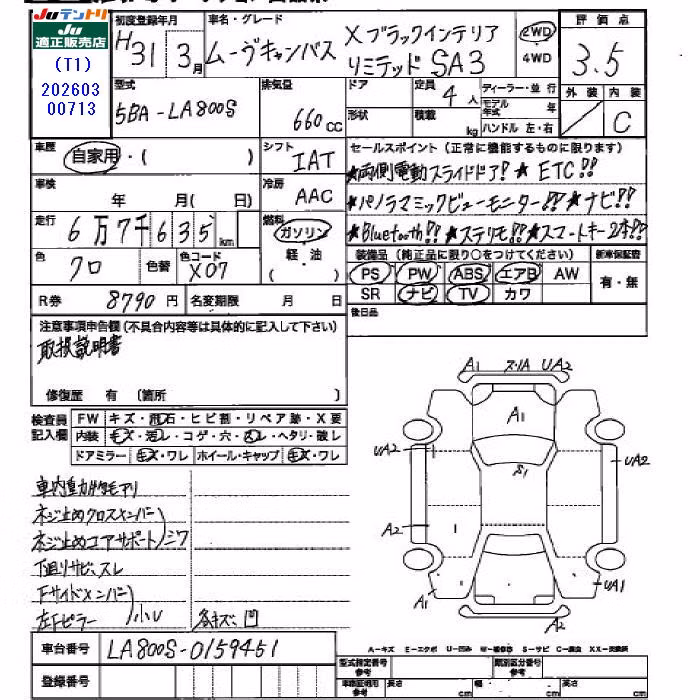 JU テントリ
JU
適正販売店
(T1)
202603
00713
初度登録年月
H31 3月
車名・グレード
ムーヴキャンバス
Xブラックインテリア
リミテッド SA3
2WD
4WD
評価点
3.5
外装 内装
C
型式
5BA-LA800S
排気量
660cc
ドア
形状
定員
4人
積載
kg
ディーラー・並行
モデル年式 年
ハンドル 左・右
車歴
自家用・( )
シフト
IAT
セールスポイント (正常に機能するものに限ります)
★両側電動スライドドア! ★ETC!!
★パノラマミックビューモニター!! ★ナビ!!
★Bluetooth!! ★ステリモ!! ★スマートキー2本!!
車検
年 月( 日)
冷房
AAC
走行
6万7千635km
燃料
ガソリン
軽・油
( )
色
クロ
色替
色コード
X07
装備品 (純正品に限り○をつけてください)
新車保証書
PS PW ABS エアB AW
SR ナビ TV カワ
有・無
R券 8790円
名変期限 月 日
後日品
注意事項申告欄 (不具合内容等は具体的に記入して下さい)
取扱説明書
修復歴 有 〔箇所 〕
検査員
記入欄
FW キズ・飛石・ヒビ割・リペア跡・X要
内装 キズ・汚レ・コゲ・穴・スレ・ヘタリ・破レ
ドアミラー キズ・ワレ ホイール・キャップ キズ・ワレ
ネジ止めクロスメンバー
ネジ止めコアサポート
下廻リサビ、スレ
Fサイドメンバー
左Fピラー 小U
各キズ、凹
A1 UA2
A1
UA2
S1
UA2
A2
A2
A1
UA1
車台番号 LA800S-0159451
登録番号
A-キズ E-エクボ U-凹み W-補修跡 S-サビ C-腐食 XX-交換済
型式指定番号
参考
類別区分番号
参考
車検証明用
参考
長さ cm
幅 cm
高さ cm